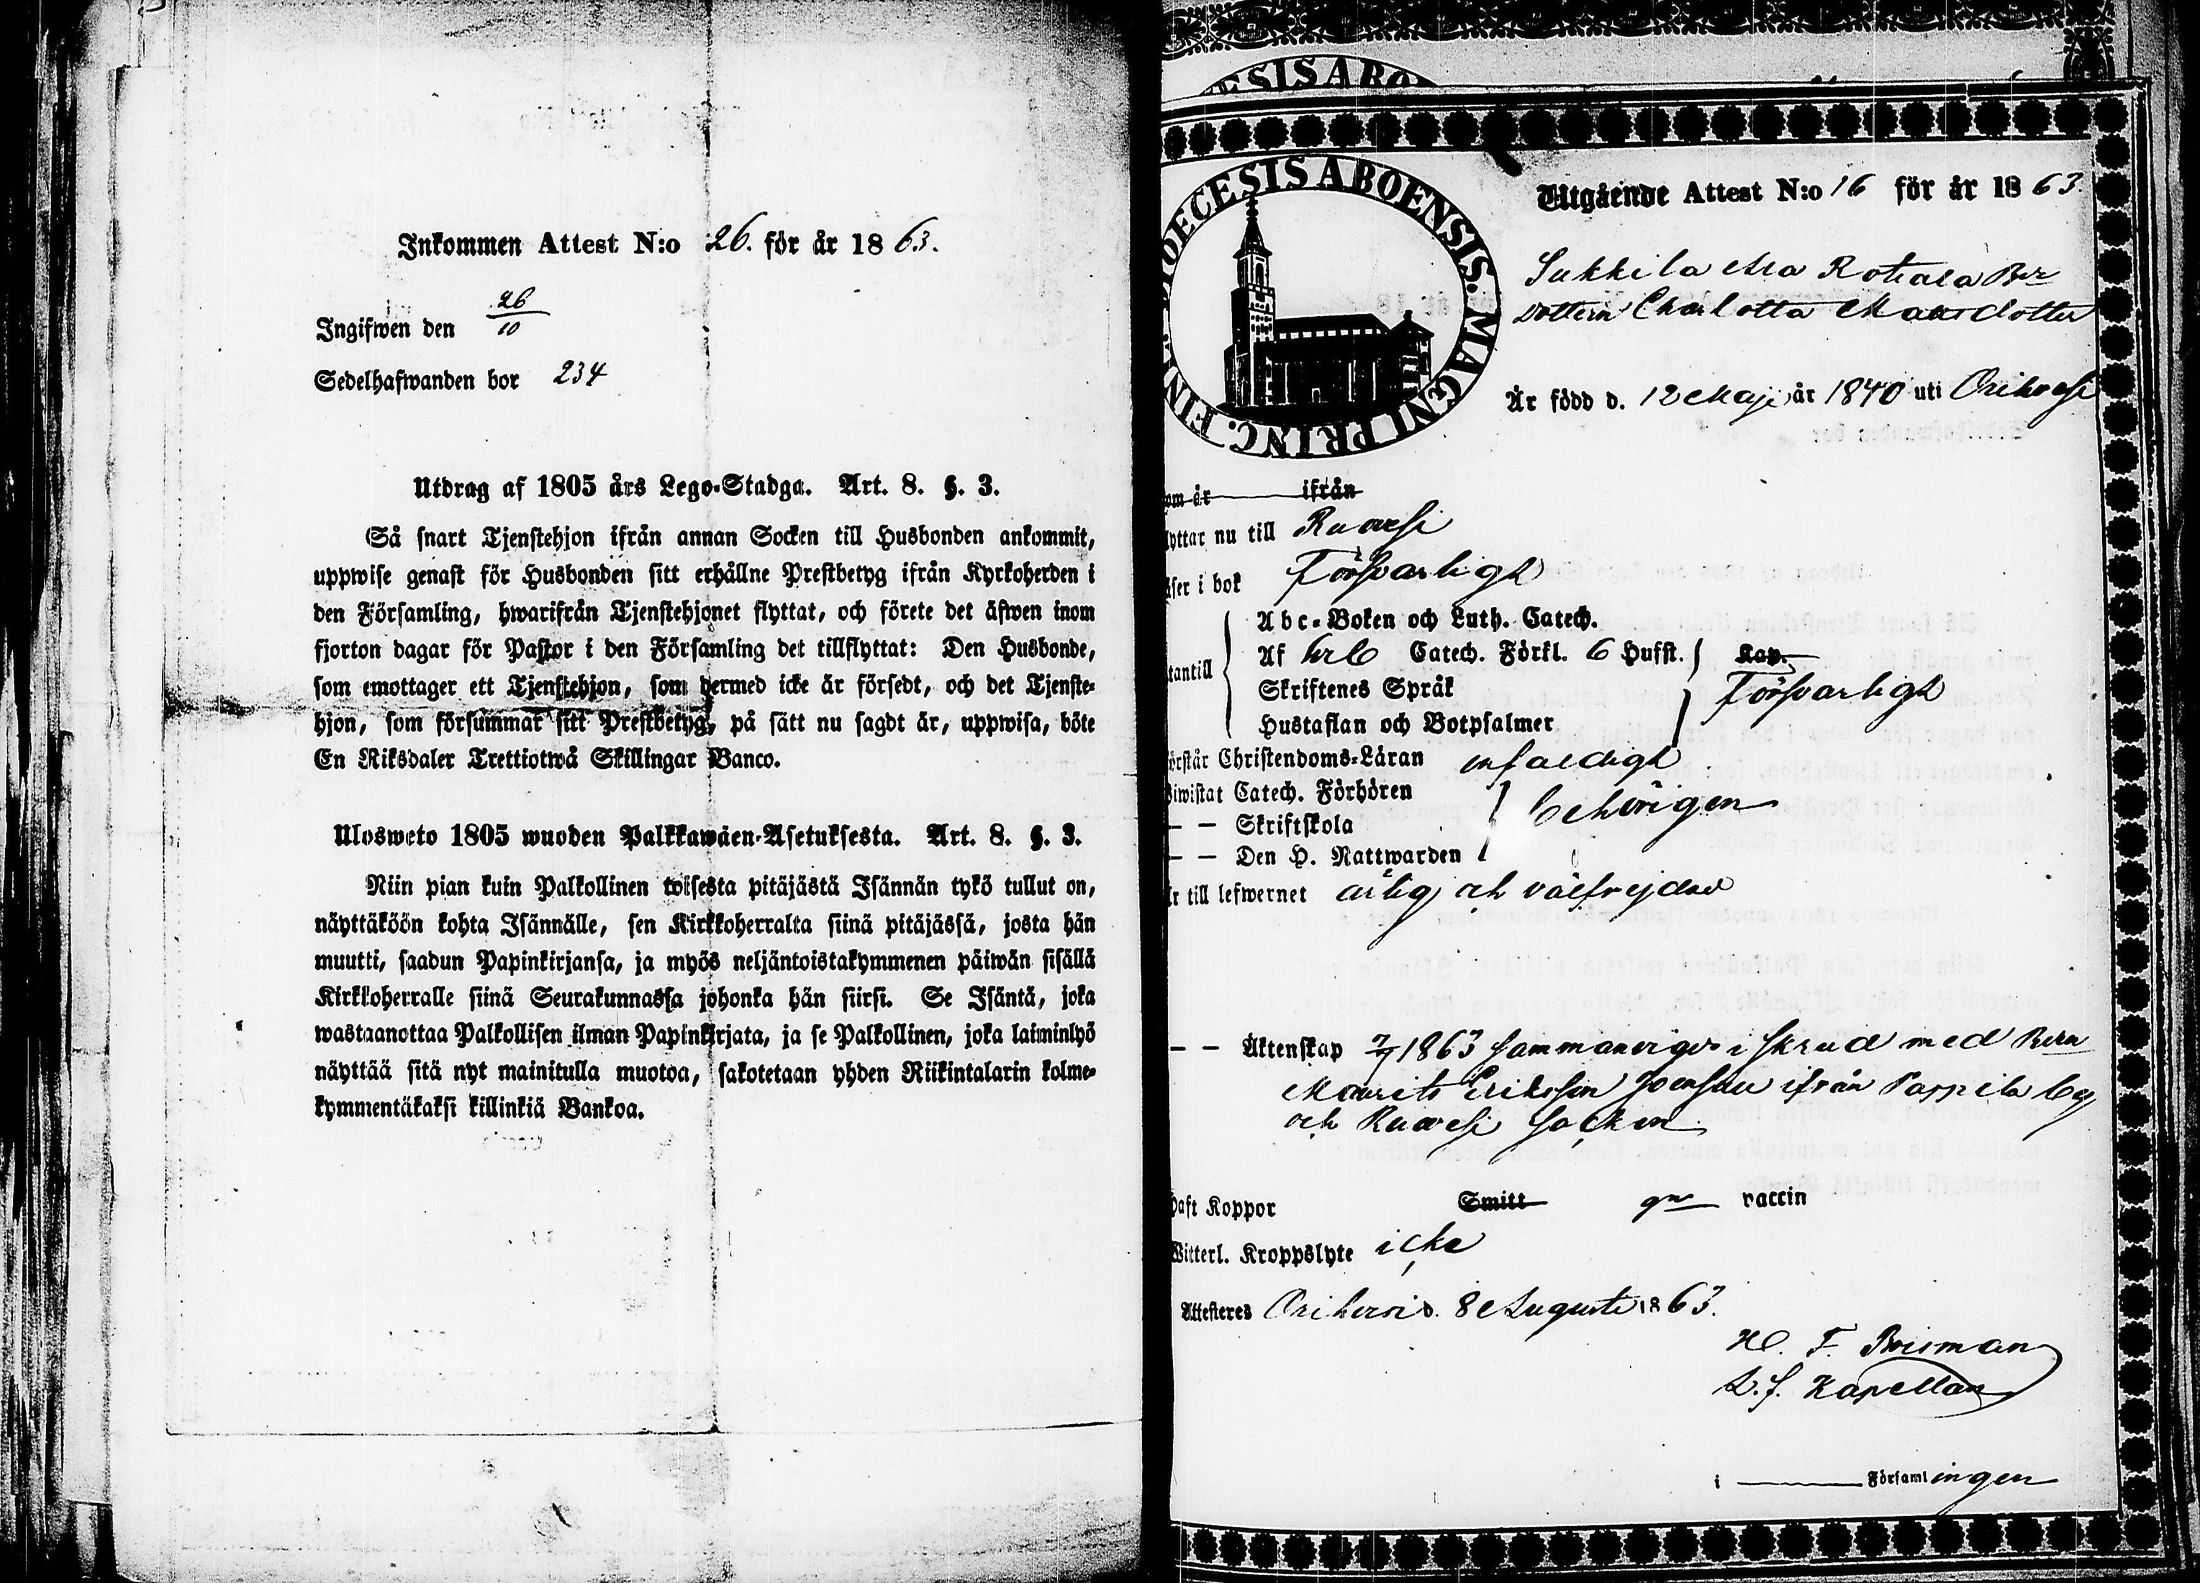 Inkommen Attest N:o 26. för år 1863.
Ingifwen den 26/10
Sedelhafwanden bor 234
Utdrag af 1805 års Lego-Stadga. Art. 8. §. 3.
Så snart Tjenstehjon ifrån annan Socken till Husbonden ankommit,
uppwise genast för Husbonden sitt erhållne Prestbetyg ifrån Kyrkoherden i
den Församling, hwarifrån Tjenstehjonet flyttat, och förete det äfwen inom
fjorton dagar för Pastor i den Församling det tillflyttat: Den Husbonde,
som emottager ett Tjenstehjon, som dermed icke är försedt, och det Tjenste-
hjon, som försummar sitt Prestbetyg, på sätt nu sagdt är, uppwisa, böte
En Riksdaler Trettiotwå Skillingar Banco.
Ulosweto 1805 wuoden Palkkawäen-Asetuksesta. Art. 8. §. 3.
Niin pian kuin Palkollinen toisesta pitäjästä Isännän tykö tullut on,
näyttäköön kohta Isännälle, sen Kirkkoherralta siinä pitäjässä, josta hän
muutti, saadun Papinkirjansa, ja myös neljäntoistakymmenen päiwän sisällä
Kirkkoherralle siinä Seurakunnassa johonka hän siirsi. Se Isäntä, joka
wastaanottaa Palkollisen ilman Papinkirjata, ja se Palkollinen, joka laiminlyö
näyttää sitä nyt mainitulla muotoa, sakotetaan yhden Riikintalarin kolme-
kymmentäkaksi killinkiä Bankoa.
ESIS ABO
DIOECESIS ABOENSIS. MAGNI PRINC. FINL.
Utgående Attest N:o 16 för år 1863.
Sukkila Rotiala
dottern Charlotta Matsdotter
Är född d. 12 Maji år 1840 uti Orihvesi
om är ifrån
lyttar nu till Ruovesi
äser i bok Försvarligt
Abc-Boken och Luth. Catech.
Af Catech. Förkl. 6 Hufst. Kap.
tantill Skriftenes Språk Försvarligt
Hustaflan och Botpsalmer
örstår Christendoms-Läran enfaldigt
iwistat Catech. Förhören
— — Skriftskola behörigen
— — Den H. Nattwarden
r till lefwernet ärlig och välfrejdad
— — Äktenskap 1863 sammanvigd i Skrud med
Maurits Eriksson ifrån Pappila by
och Ruovesi Socken
haft Koppor Smitt gm vaccin
Witterl. Kroppslyte icke
Attesteres Orihvesi d. 8 Augusti 1863.
H. F. Brisman
Kapellan
i — Församlingen